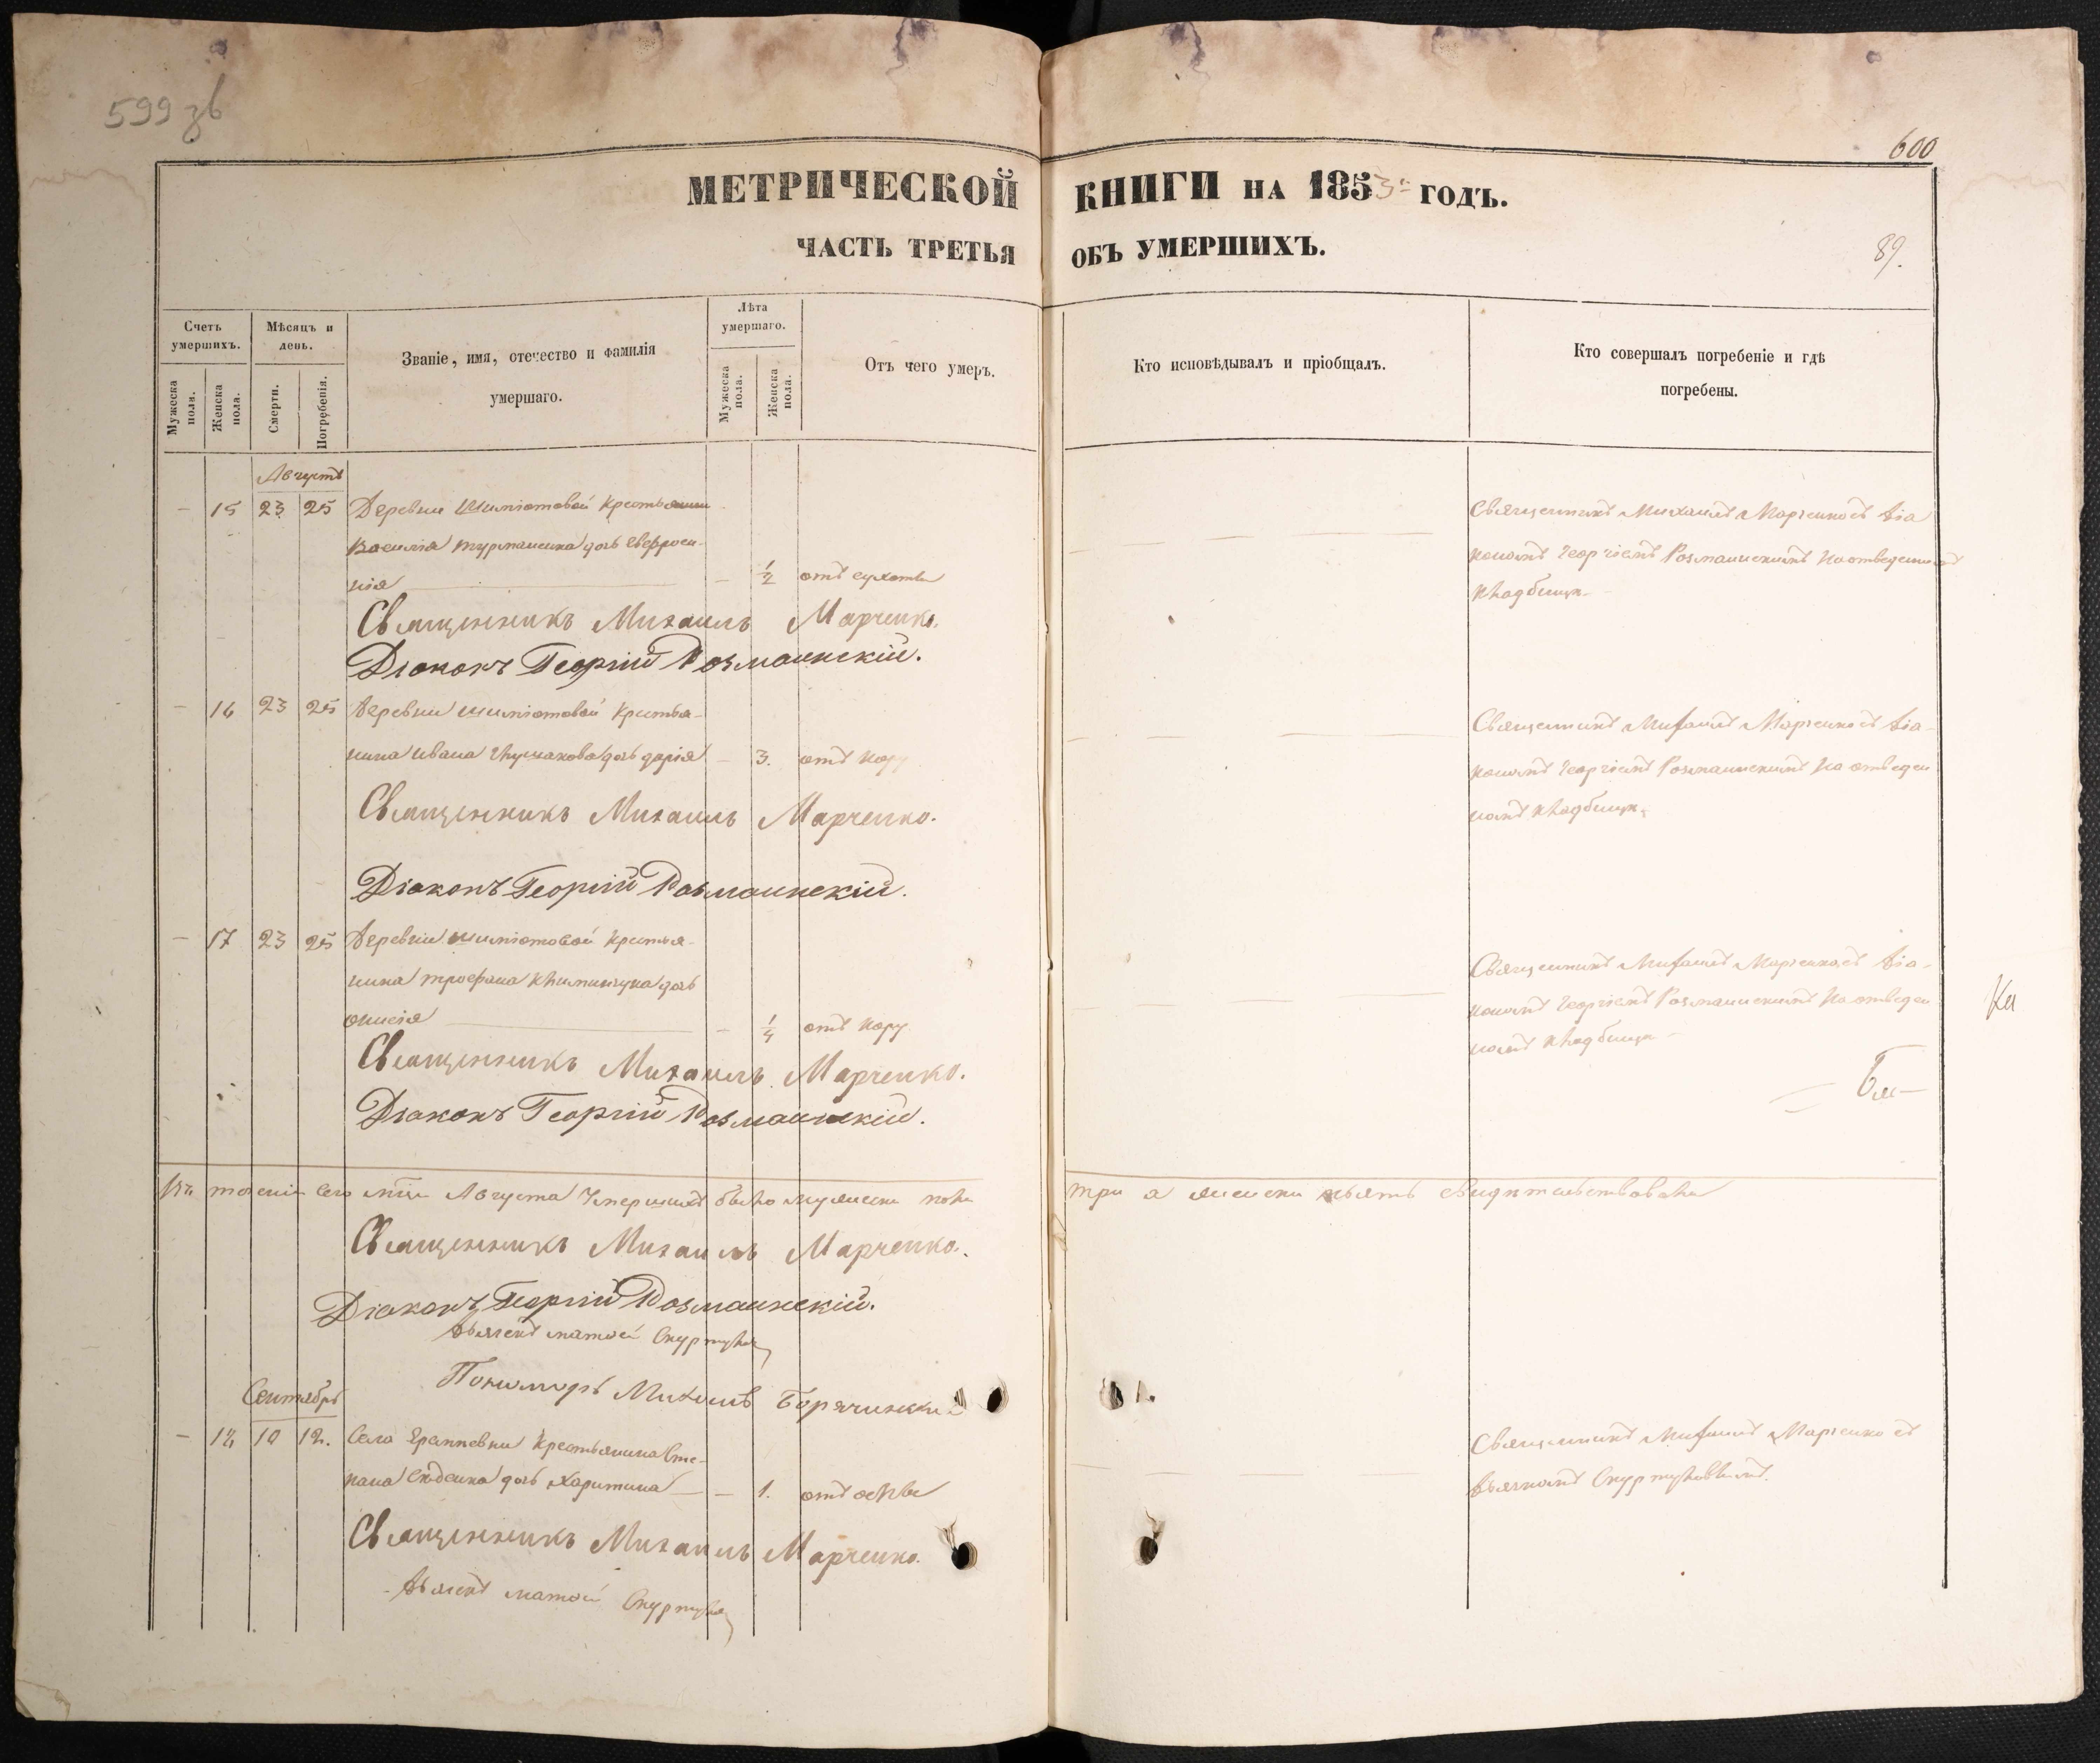 599 зв
600
МЕТРИЧЕСКОЙ КНИГИ НА 1853 ГОДЪ.
ЧАСТЬ ТРЕТЬЯ ОБЪ УМЕРШИХЪ.
89.
Счетъ умершихъ.
Мужеска пола.
Женска пола.
Мѣсяцъ и день.
Смерти.
Погребенія.
Званіе, имя, отечество и фамилія
умершаго.
Лѣта умершаго.
Мужеска пола.
Женска пола.
Отъ чего умеръ.
Кто исповѣдывалъ и пріобщалъ.
Кто совершалъ погребеніе и гдѣ
погребены.
Августъ
15 23 25 Деревни Крестьянина
Василія дочь Евфроси-
нія — ½ отъ сухоты
Священникъ Михаилъ Марченко съ Діа
кономъ Георгіемъ Розмаинскимъ на отведенномъ
кладбищѣ
Священникъ Михаилъ Марченко.
Діаконъ Георгій Розмаинскій.
16 23 25 Деревни Крестья-
нина Ивана дочь Дарія — 3. отъ кору
Священникъ Михаилъ Марченко съ Діа-
кономъ Георгіемъ Розмаинскимъ на отведен
номъ кладбищѣ
Священникъ Михаилъ Марченко.
Діаконъ Георгій Розмаинскій.
17 23 25 Деревни Крестья-
нина Трофима дочь
Онисія — ¼ отъ кору
Священникъ Михаилъ Марченко съ Діа-
кономъ Георгіемъ Розмаинскимъ на отведен
номъ кладбищѣ
Священникъ Михаилъ Марченко.
Діаконъ Георгій Розмаинскій.
Въ теченіи сего мѣсяца Августа Умершихъ было мужеска пола три а женска пять свидѣтельствовали
Священникъ Михаилъ Марченко.
Діаконъ Георгій Розмаинскій.
Дьячекъ Матѳей
Пономарь Михаилъ
Сентябрь
18 10 12. Села Крестьянина Сте-
пана дочь Харитина — 1. отъ оспы
Священникъ Михаилъ Марченко съ
дьячкомъ
Священникъ Михаилъ Марченко.
Дьячекъ Матѳей